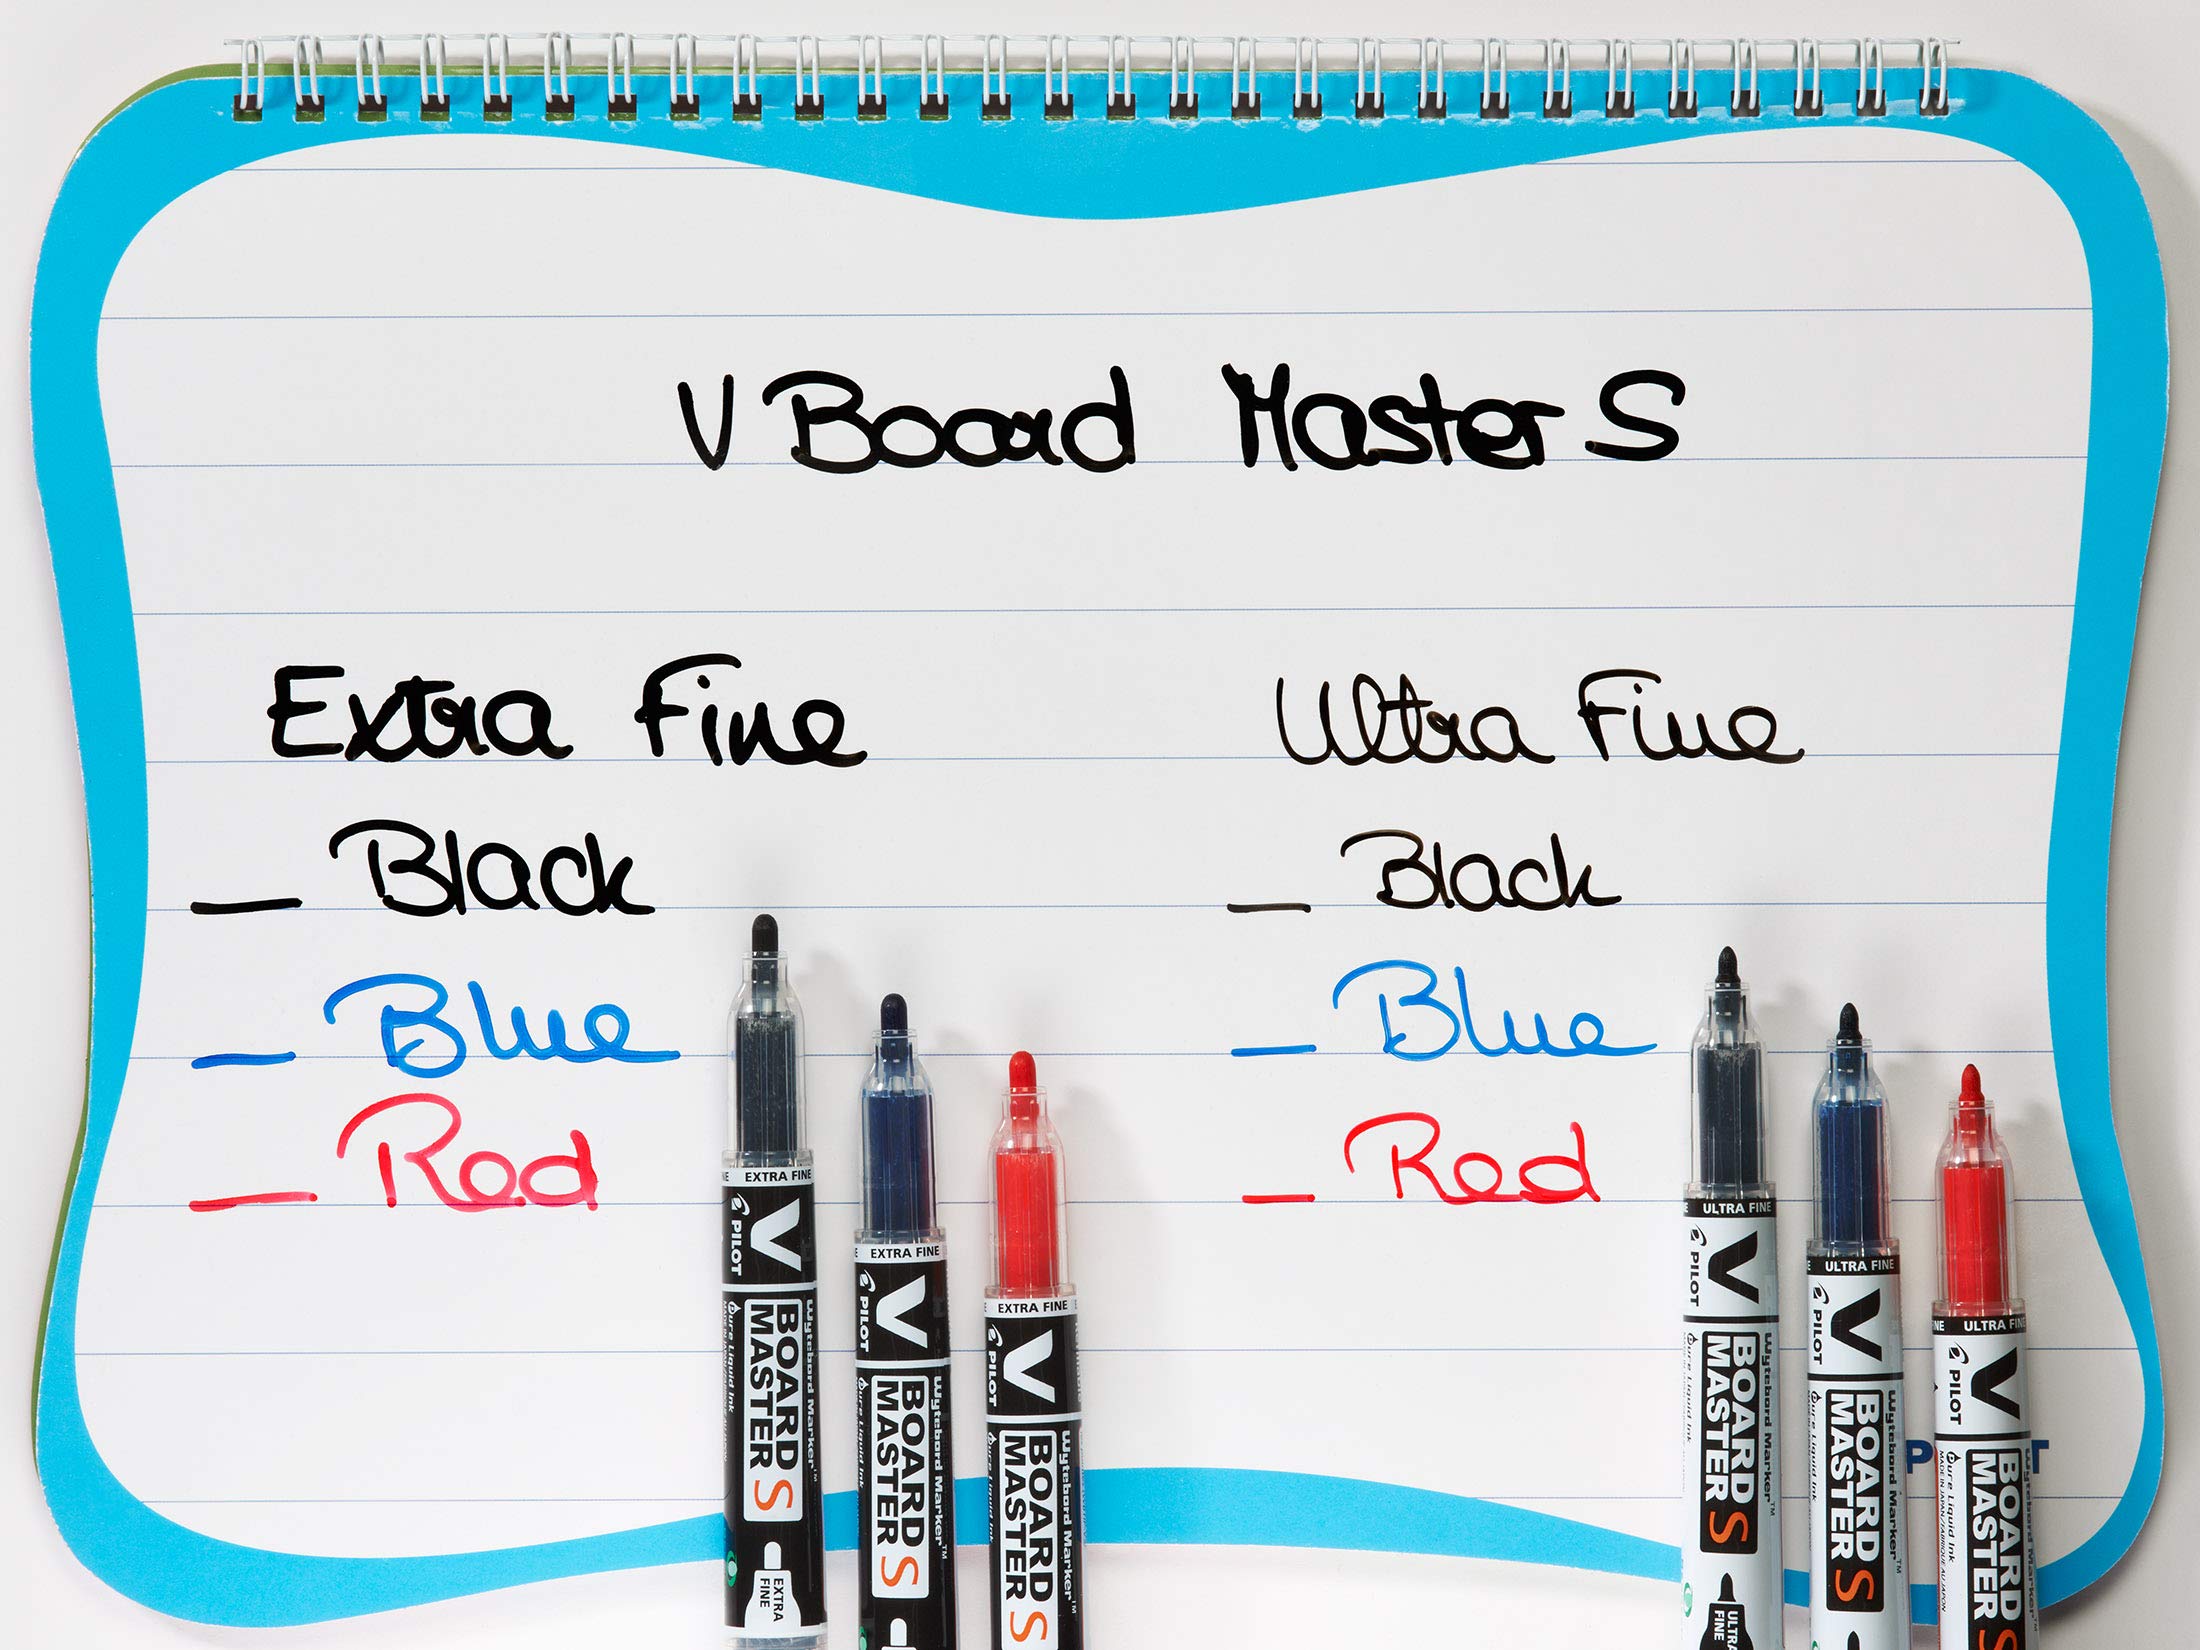 V Board Master S
Extra Fine
Ultra Fine
_ Black
_ Black
_ Blue
_ Blue
_ Red
_ Red
EXTRA FINE
V PILOT
BOARD MASTER S
Wyteboard Marker™
Pure Liquid Ink
EXTRA FINE
EXTRA FINE
V PILOT
BOARD MASTER S
Wyteboard Marker™
Pure Liquid Ink
EXTRA FINE
V PILOT
BOARD MASTER S
Wyteboard Marker
Pure Liquid Ink
ULTRA FINE
V PILOT
BOARD MASTER S
Wyteboard Marker™
Pure Liquid Ink
ULTRA FINE
ULTRA FINE
V PILOT
BOARD MASTER S
Wyteboard Marker™
Pure Liquid Ink
ULTRA FINE
V PILOT
BOARD MASTER S
Wyteboard Marker
Pure Liquid Ink
MADE IN JAPAN/FABRIQUE AU JAPON